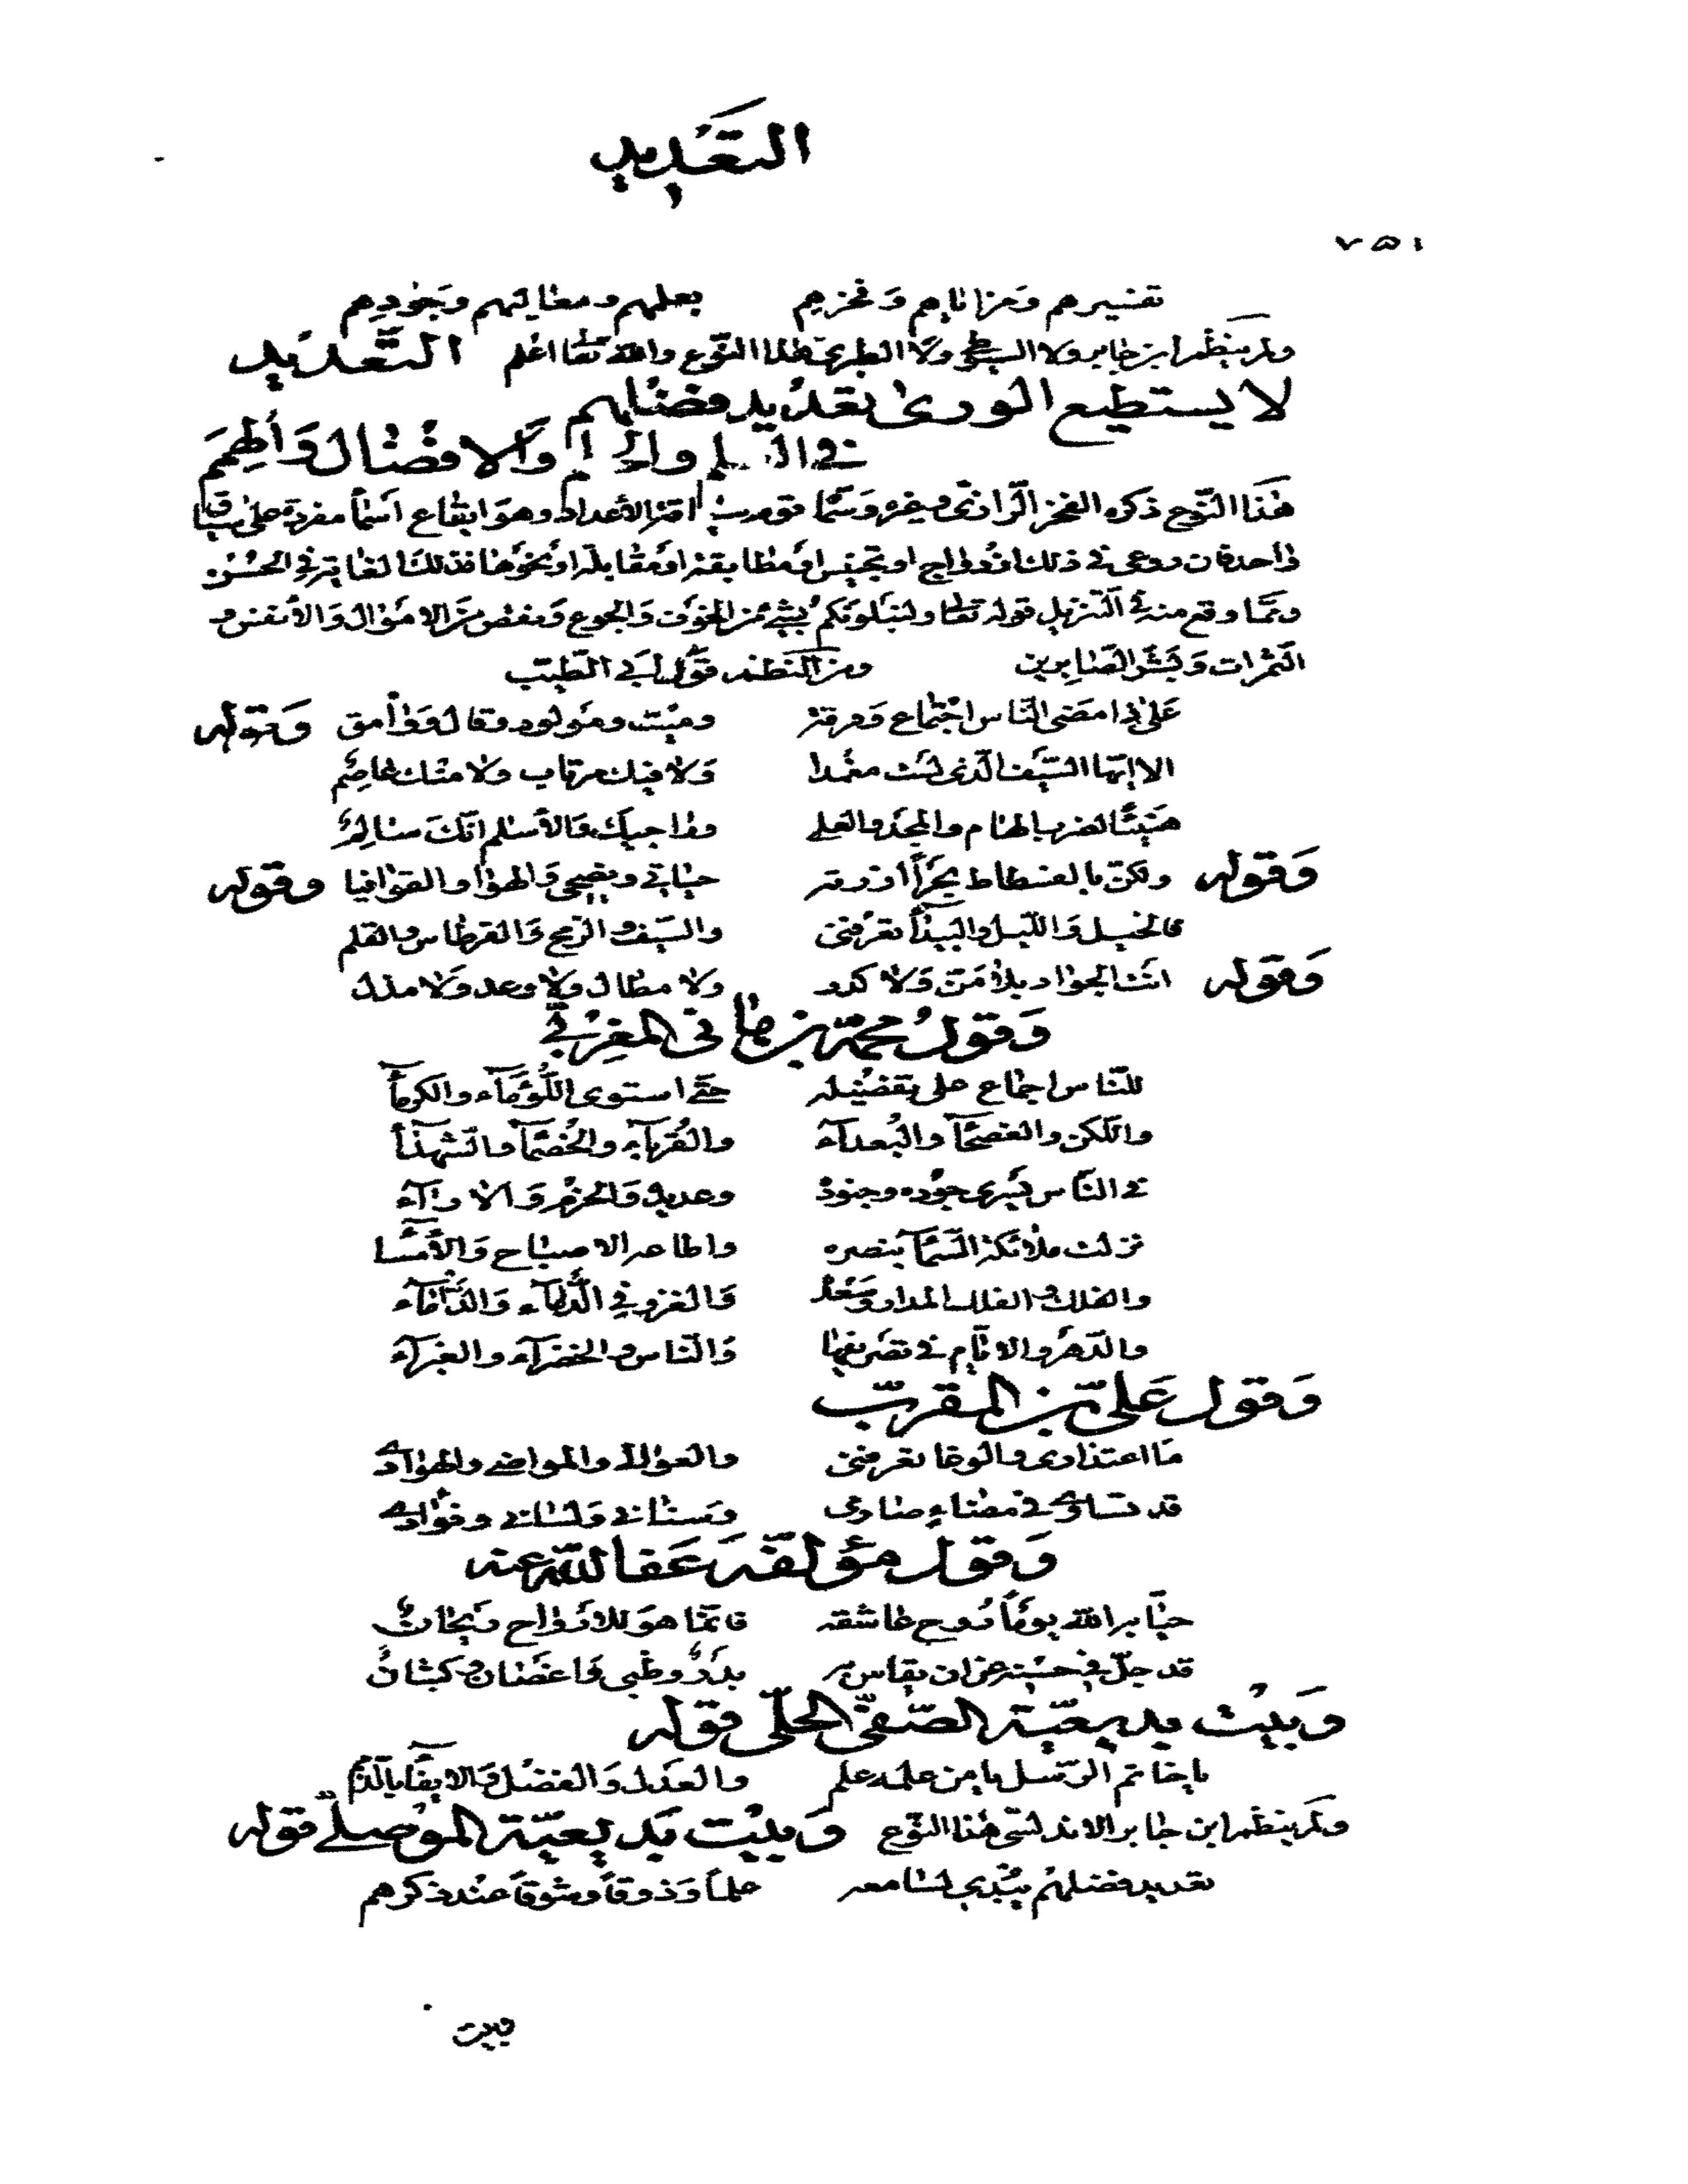 التعديد
٧٥١
تفسيرهم ومزاياهم وفخرهم بعلمهم ومعاليهم وجودهم
ولم ينظم ابن جابر ولا السيوطي ولا الطبري هذا النوع والله تعالى اعلم التَّعديد
لا يستطيع الورى تعديد فضلهم
في العلم والحلم والافضال والهمم
هٰذا النّوع ذكره الفخر الرّازي وغيره وسمّاه قوم سياقة الأعداد وهو ايقاع أسماء مفردة على سياق
واحد فان روعي في ذلك ازدواج او تجنيس او مطابقة او مقابلة او نحوها فذلك الغاية في الحسن
وممّا وقع منه في التنزيل قوله تعالى ولنبلونّكم بشيء من الخوف والجوع ونقص من الاموال والأنفس و
الثمرات وبشّر الصّابرين ومن النظم قول أبي الطيّب
على ذا مضى النّاس اجتماع وفرقة وميّت ومولود وقال ووامق وقوله
الا ايّها السّيف الّذي لست مغمدا ولا فيك مرتاب ولا منك عاصم
هنيئًا لضرب الهام والمجد والعلى وراجيك والأسلام انّك سالم
وقوله ولكنّ بالفسطاط بحرًا ازرته حياتي ونصحي والهوى والقوافيا وقوله
فالخيل واللّيل والبيداء تعرفني والسّيف والرّمح والقرطاس والقلم
وقوله انت الجواد بلا منّ ولا كدر ولا مطال ولا وعد ولا مذل
وقول محمّد بن هاني المغربيّ
للنّاس اجماع على تفضيله حتّى استوى اللّؤماء والكرماء
واللّكن والفصحاء والبعداء والقرباء والخصماء والشّهداء
في النّاس يسري جوده وجنوده وعديده والحزم والآراء
نزلت ملائكة السّماء بنصره واطاعه الاصباح والأمساء
والفلك والفلك المدار وسعده والغزو في الدّأماء والدّأماء
والدّهر والايّام في تصريفها والنّاس والخضراء والغبراء
وقول عليّ بن المقرّب
ما اعتذاري والوغا تعرفني والعوالي والمواضي والهوادي
قد تساوى في مضاء صارمي وسناني ولساني وفؤادي
وقول مؤلّفه عفا الله عنه
حيّا به الله يومًا روح عاشقه فانّما هو للارواح ريحان
قد جلّ في حسنه عن ان يقاس به بدر وظبي واغصان وكثبان
وبيت بديعيّة الصّفيّ الحلّي قوله
يا خاتم الرّسل يا من علمه علم والعدل والفضل والايفاء بالذّمم
ولم ينظم ابن جابر الاندلسي هٰذا النّوع وبيت بديعيّة الموصليّ قوله
تعديد فضلهم يبدي لسامعه علمًا وذوقًا وشوقًا عند ذكرهم
وبيت